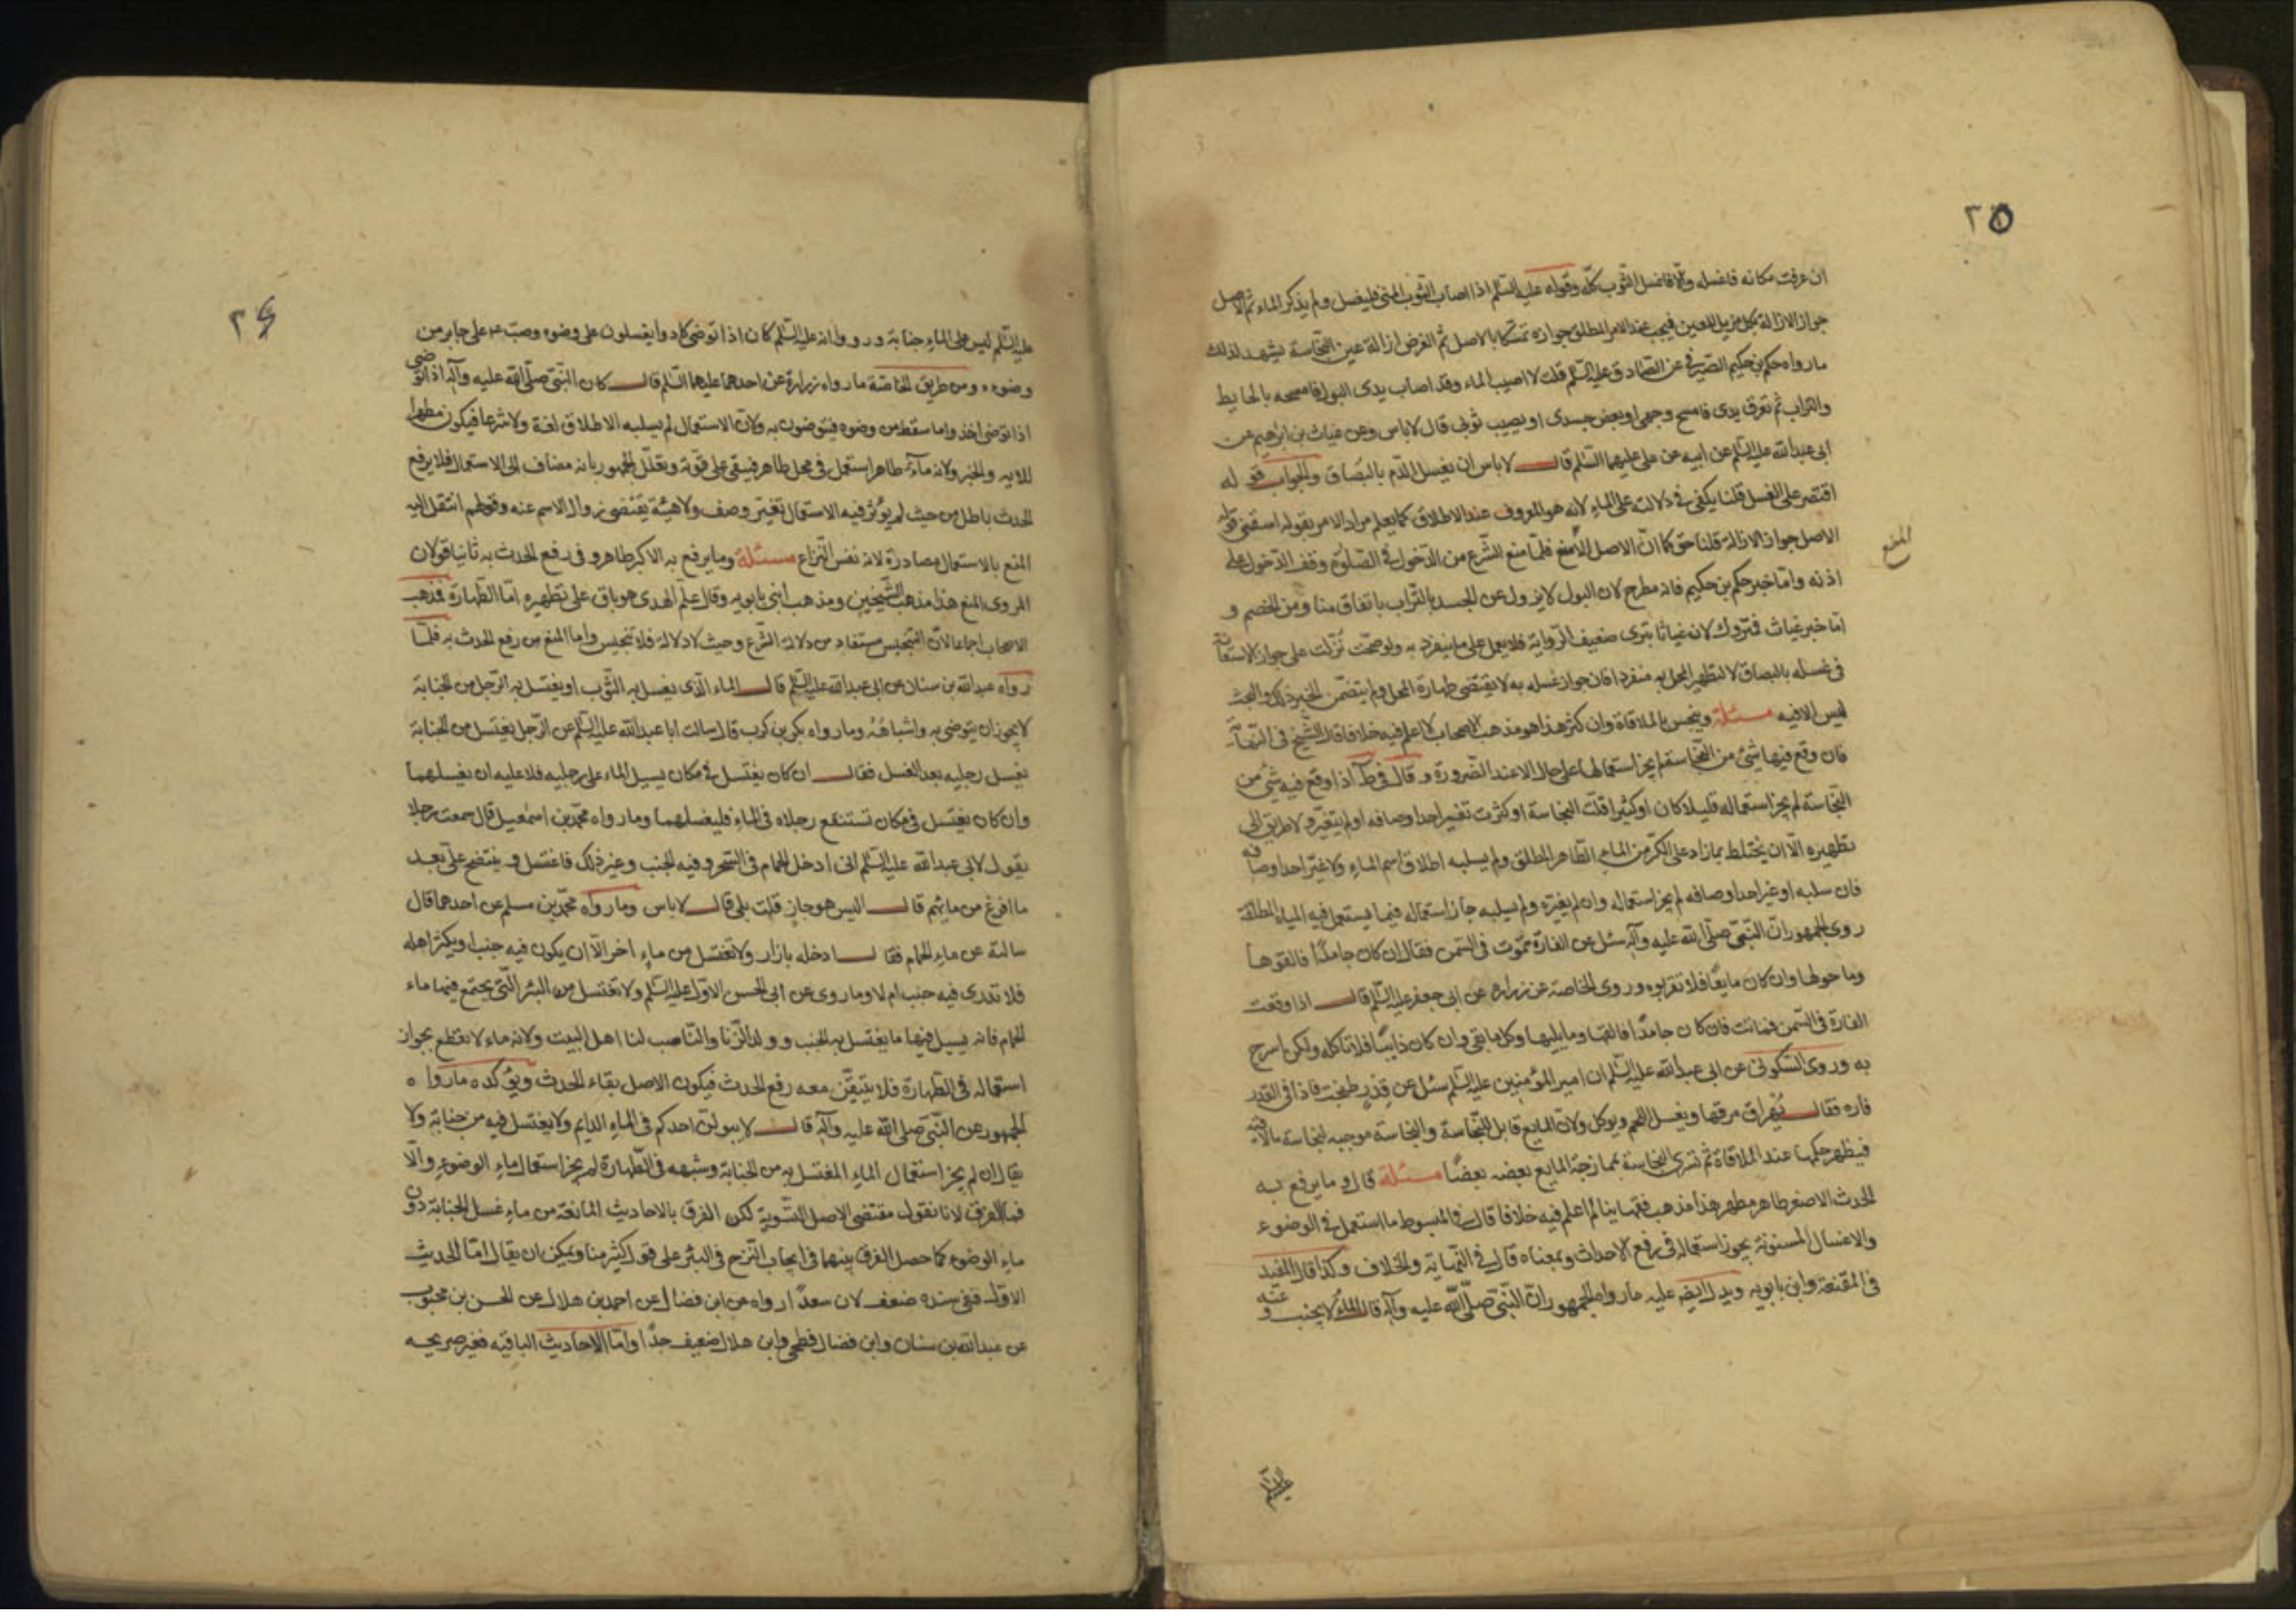 ٢٥
ان عرفت مكانه فاغسله والا فاغسل الثوب كله وقوله عليه السّلم اذا اصاب الثوب المنى فليغسل ولم يذكر الماء ثم الاصل
جواز الازالة بكل مزيل للعين فيجب عند الامر المطلق جوازه تمسكا بالاصل ثم الغرض ازالة عين النجاسة يشهد لذلك
ما رواه حكم بن حكيم الصيرفى عن الصادق عليه السّلم قلت لا اصيب الماء وقد اصاب يدى البول فامسحه بالحايط
والتراب ثم تعرق يدى فامسح وجهى او بعض جسدى او يصيب ثوبى قال لا باس وعن غياث بن ابرهيم عن
ابى عبد الله عليه السّلم عن ابيه عن على عليهما السّلم قال لا باس ان يغسل الدّم بالبصاق والجواب قوله
اقتصر على الغسل قلنا يكفى فى دلالته على الماء لانه هو المعروف عند الاطلاق كما يعلم مراد الامر بقوله اسقنى قوله
الاصل جواز الازالة قلنا حق كما انّ الاصل المنع فلمّا منع الشرع من الدّخول فى الصلوة وقف الدّخول على
المنع
اذنه وامّا خبر حكم بن حكيم فانه مطرح لان البول لا يزول عن الجسد بالتّراب باتفاق منا ومن الخصم و
امّا خبر غياث فمتروك لان غياثا بترى ضعيف الرّواية فلا يعمل على ما ينفرد به ولو صحّت نزّلت على جواز الاستعانة
فى غسله بالبصاق لا لتطهير المحل به منفردا فان جواز غسله به لا يقتضى طهارة المحل ولم يتضمّن الخبر ذلك والبحث
ليس الا فيه مسئلة وينجس بالملاقاة وان كثر هذا هو مذهب الاصحاب لا اعلم فيه خلافا قال الشّيخ فى النهاية
فان وقع فيها شىء من النّجاسة لم يجز استعمالها على حال الا عند الضّرورة وقال فى ط اذا وقع فيه شىء من
النّجاسة لم يجز استعماله قليلا كان او كثيرا قلّت النجاسة او كثرت تغير احد اوصافه او لم يتغيّر ولا طريق الى
تطهيره الّا ان يختلط بما زاد على الكرّ من الماء الطّاهر المطلق ولم يسلبه اطلاق اسم الماء ولا غيّر احد اوصافه
فان سلبه او غيّر احد اوصافه لم يجز استعماله وان لم يغيّره ولم يسلبه جاز استعماله فيما يستعمل فيه المياه المطلقة
روى الجمهور انّ النّبى صلّى الله عليه وآله سئل عن الفارة تموت فى السّمن فقال ان كان جامدًا فالقوها
وما حولها وان كان مايعًا فلا تقربوه وروى الخاصة عن زرارة عن ابى جعفر عليه السّلم قال اذا وقعت
الفارة فى السّمن فماتت فان كان جامدًا فالقها وما يليها وكل ما بقى وان كان ذايبًا فلا تاكله ولكن اسرج
به وروى السّكونى عن ابى عبد الله عليه السّلم ان امير المؤمنين عليه السّلم سئل عن قِدْرٍ طبخت فاذا فى القدر
فاره فقال يُهراق مرقها ويغسل اللحم ويوكل ولانّ المايع قابل للنّجاسة والنجاسة موجبه لنجاسة ما لاقته
فيظهر حكمها عند الملاقاة ثم تسرى النجاسة بممازجة المايع بعضه بعضًا مسئلة قال وما يرفع به
الحدث الاصغر طاهر مطهر هذا مذهب فقهاينا لم اعلم فيه خلافا قال فى المبسوط ما استعمل فى الوضوء
والاغسال المسنونة يجوز استعماله فى رفع الاحداث وبمعناه قال فى النّهاية والخلاف وكذا قال المفيد
فى المقنعة وابن بابويه ويدل ايضه عليه ما رواه الجمهور انّ النّبى صلّى الله عليه وآله قال الماء لا يجنب وعنه
٢٦
عليه السّلم ليس على الماء جنابة ورووا انه عليه السّلم كان اذا توضى كادوا يغسلون على وضوه وصبّ ع على جابر من
وضوءه ومن طريق الخاصّة ما رواه زرارة عن احدهما عليهما السّلم قال كان النبى صلّى الله عليه وآله اذا توضى
اذا توضى اخذ واما سقط من وضوه فيتوضون به ولانّ الاستعمال لم يسلبه الاطلاق لغة ولا شرعا فيكون مطهرا
للايه والخبر ولانه ماء طاهر استعمل فى محل طاهر فيبقى على قوّته وتعلّل الجمهور بانه مضاف الى الاستعمال فلا يرفع
الحدث باطل من حيث لم يؤثر فيه الاستعمال تغيّر وصف ولا هيئة يقتضى زوال الاسم عنه وقولهم انتقل اليه
المنع بالاستعمال مصادرة لانه نفس النّزاع مسئلة وما يرفع به الاكبر طاهر وفى رفع الحدث به ثانيا قولان
المروى المنع هذا مذهب الشّيخين ومذهب ابنى بابويه وقال علم الهدى هو باق على تطهيره امّا الطّهارة فمذهب
الاصحاب اجماعا لانّ التنجيس مستفاد من دلالة الشّرع وحيث لا دلالة فلا تنجيس وامّا المنع من رفع الحدث به فلمّا
رواه عبد الله بن سنان عن ابى عبد الله عليه السّلم قال الماء الذى يغسل به الثّوب او يغتسل به الرّجل من الجنابة
لا يجوز ان يتوضى به واشباهُهُ وما رواه بكر بن كرب قال سالت ابا عبد الله عليه السّلم عن الرّجل يغتسل من الجنابة
يغسل رجليه بعد الغسل فقال ان كان يغتسل فى مكان يسيل الماء على رجليه فلا عليه ان يغسلهما
وان كان يغتسل فى مكان تستنقع رجلاه فى الماء فليغسلهما وما رواه محمّد بن اسمعيل قال سمعت رجلا
يقول لابى عبد الله عليه السّلم انى ادخل الحمام فى السّحر وفيه الجنب وغير ذلك فاغتسل وينتضح علىّ بعد
ما افرغ من مائهم قال اليس هو جارٍ قلت بلى قال لا باس وما رواه محمّد بن مسلم عن احدهما قال
سالته عن ماء الحمام فقال ادخله بازار ولا تغتسل من ماء اخر الّا ان يكون فيه جنب او يكثر اهله
فلا تدرى فيه جنب ام لا وما روى عن ابى الحسن الاوّل عليه السّلم ولا تغتسل من البئر التّى يجتمع فيها ماء
الحمام فانه يسيل فيها ما يغتسل به الجنب وولد الزّنا والنّاصب لنا اهل البيت ولانه ماء لا نقطع بجواز
استعماله فى الطّهارة فلا يتيقّن معه رفع الحدث فيكون الاصل بقاء الحدث ويؤكده ما رواه
الجمهور عن النّبى صلّى الله عليه وآله قال لا يبولنّ احدكم فى الماء الدايم ولا يغتسل فيه من جنابة ولا
يقال ان لم يجز استعمال الماء المغتسل به من الجنابة وشبهه فى الطّهارة لم يجز استعمال ماء الوضوء والّا
فما الفرق لانا نقول مقتضى الاصل التّسوية لكن الفرق بالاحاديث المانعة من ماء غسل الجنابة دون
ماء الوضوء كما حصل الفرق بينهما فى ايجاب النّزح فى البئر على قول اكثر منا ويمكن ان يقال امّا الحديث
الاوّل ففى سنده ضعف لان سعدًا رواه عن ابن فضال عن احمد بن هلال عن الحسن بن محبوب
عن عبد الله بن سنان وابن فضال فطحى وابن هلال ضعيف جدًا وامّا الاحاديث الباقيه فغير صريحه